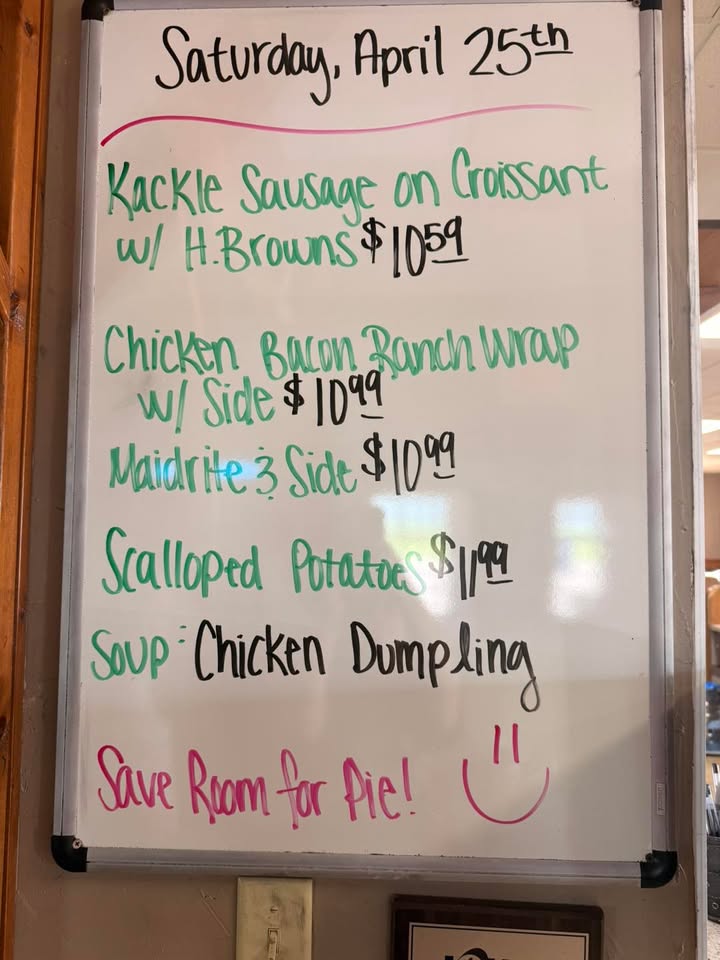 Saturday, April 25th
Kackle Sausage on Croissant
w/ H.Browns $10.59
Chicken Bacon Ranch Wrap
w/ Side $10.99
Maidrite & Side $10.99
Scalloped Potatoes $11.99
Soup: Chicken Dumpling
Save Room for Pie!